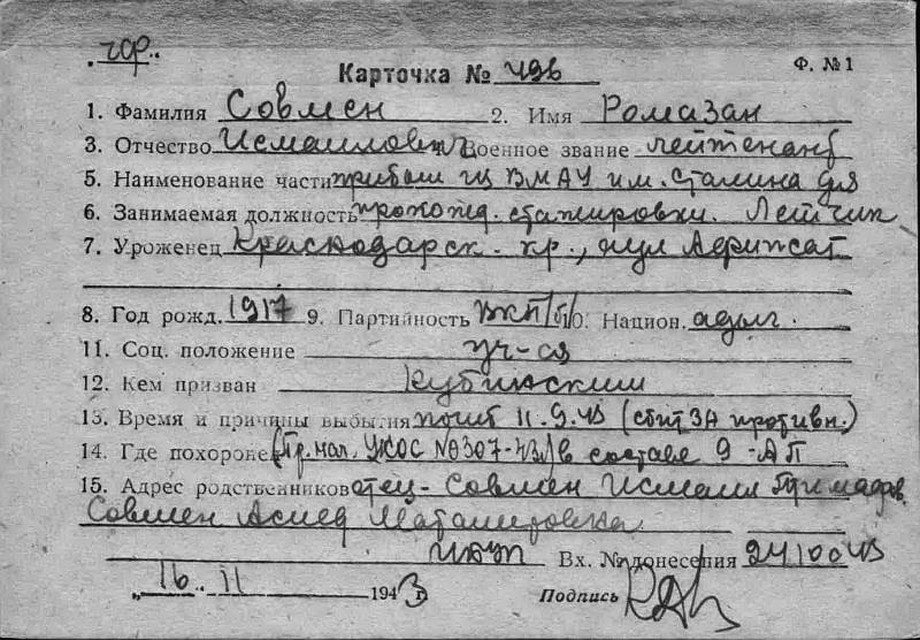 Ф. №1
Карточка №
1. Фамилия Совмен 2. Имя Ромазан
3. Отчество Исмаилович Военное звание лейтенант
5. Наименование части прибыл из ВМАУ им. Сталина для
6. Занимаемая должность прохожд. стажировки. Летчик
7. Уроженец Краснодарск. кр., аул
8. Год рожд. 1917 9. Партийность ВКП/б/ 0. Национ. адыг.
11. Соц. положение уч-ся
12. Кем призван Кубинским
13. Время и причины выбытия погиб 11.9.43 (сбит ЗА противн.)
14. Где похоронен (Пр. нач. УЖОС №0307-43г/в составе 9-АП
15. Адрес родственников отец - Совмен Исмаил
Совмен
Вх. № донесения
„ 16 „ 11 1943 г.
Подпись